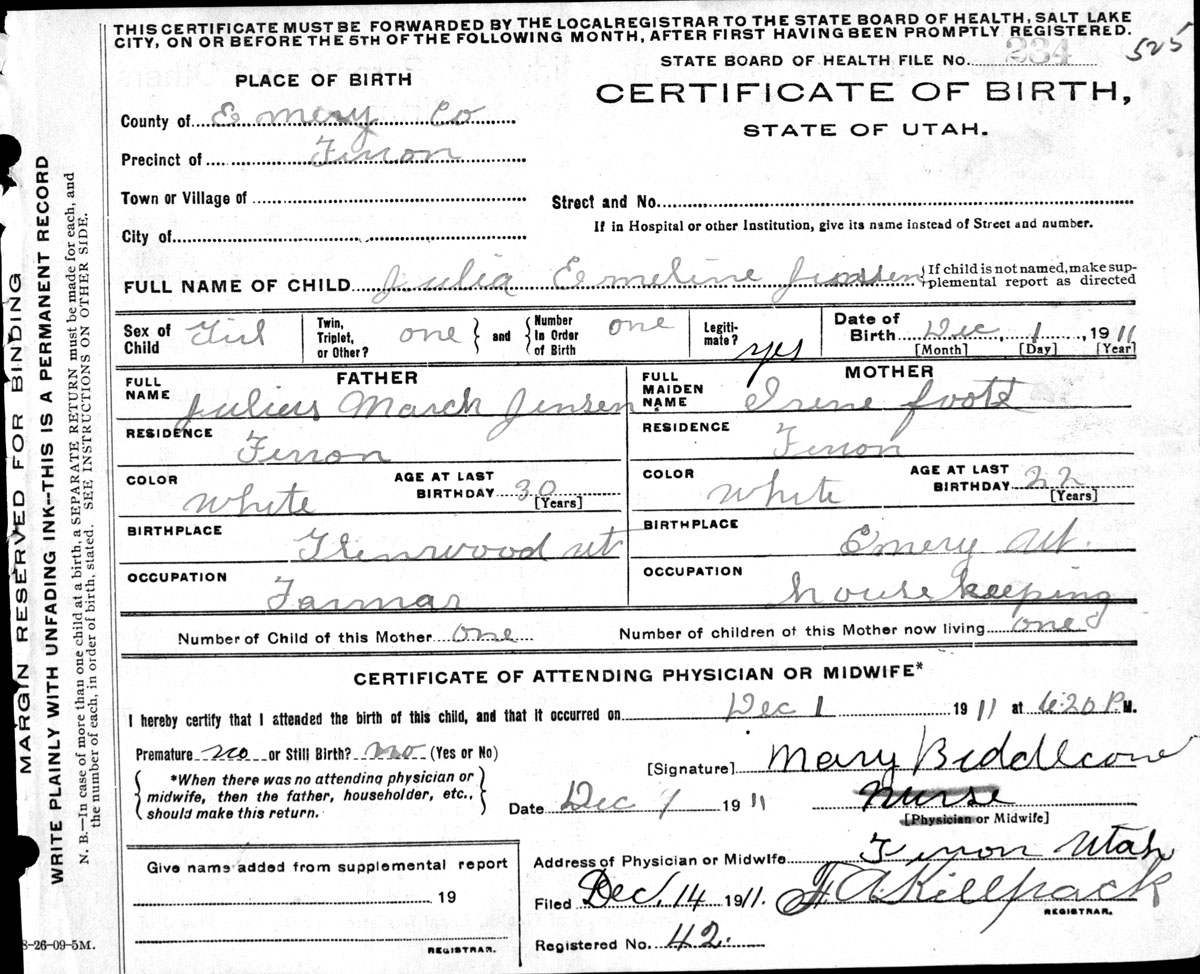 THIS CERTIFICATE MUST BE FORWARDED BY THE LOCAL REGISTRAR TO THE STATE BOARD OF HEALTH, SALT LAKE
CITY, ON OR BEFORE THE 5TH OF THE FOLLOWING MONTH, AFTER FIRST HAVING BEEN PROMPTLY REGISTERED.
525
STATE BOARD OF HEALTH FILE No. 234
PLACE OF BIRTH
CERTIFICATE OF BIRTH,
STATE OF UTAH.
County of Emery Co
Precinct of Ferron
Town or Village of
Street and No.
City of
If in Hospital or other Institution, give its name instead of Street and number.
FULL NAME OF CHILD Julia Emeline Jensen { If child is not named, make sup-
plemental report as directed
Sex of Child Girl
Twin, Triplet, or Other? one } and { Number In Order of Birth one
Legiti-mate? yes
Date of Birth Dec, 1, 1911
[Month] [Day] [Year]
FATHER
FULL NAME Julius March Jensen
RESIDENCE Ferron
COLOR White AGE AT LAST BIRTHDAY 30 [Years]
BIRTHPLACE Glenwood ut
OCCUPATION Farmar
MOTHER
FULL MAIDEN NAME Irene foote
RESIDENCE Ferron
COLOR White AGE AT LAST BIRTHDAY 22 [Years]
BIRTHPLACE Emery Ut.
OCCUPATION housekeeping
Number of Child of this Mother one Number of children of this Mother now living one
CERTIFICATE OF ATTENDING PHYSICIAN OR MIDWIFE*
I hereby certify that I attended the birth of this child, and that it occurred on Dec 1 1911 at 6:20 P M.
Premature no or Still Birth? no (Yes or No)
[Signature] Mary Biddlcome
{ *When there was no attending physician or
midwife, then the father, householder, etc.,
should make this return. }
Date Dec 1 1911 Nurse
[Physician or Midwife]
Give name added from supplemental report
19
REGISTRAR.
Address of Physician or Midwife Ferron Utah
Filed Dec. 14 1911. F A Killpack
REGISTRAR.
Registered No. 42.
8-26-09-5M.
MARGIN RESERVED FOR BINDING
WRITE PLAINLY WITH UNFADING INK--THIS IS A PERMANENT RECORD
N. B.—In case of more than one child at a birth, a SEPARATE RETURN must be made for each, and
the number of each, in order of birth, stated. SEE INSTRUCTIONS ON OTHER SIDE.